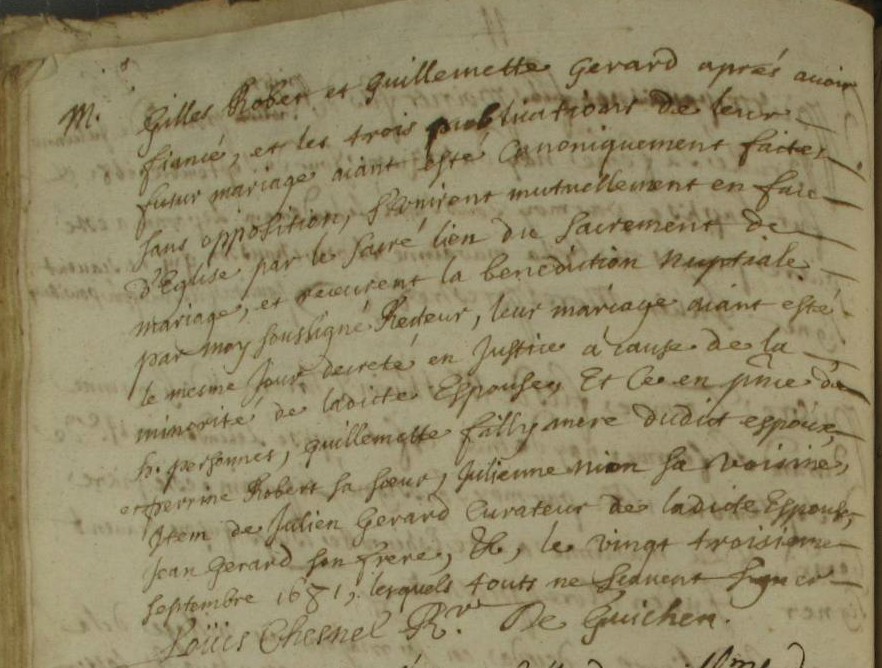 M. Gilles Robert et Guillemette Gerard aprés avoir
fiancé, et les trois publications de leur
futur mariage aiant esté Canoniquement faictes
sans opposition, s'unirent mutuellement en face
d'Eglise par le sacré lien du sacrement de
mariage, et receurent la benediction nuptiale
par moy soussigné Recteur, leur mariage aiant esté
le mesme jour decreté en Justice à cause de la
minorité de ladicte Espouse, Et Ce en pnce de
h. personnes, Guillemette fally mere dudict espoux,
et perrine Robert sa sœur, Julienne nion sa voisine,
Item de Julien Gerard Curateur de ladicte Espouse,
Jean Gerard son frere, &c, le vingt troisieme
Septembre 1681, lesquels touts ne scavent signer
Loüis Chesnel Rr. De Guichen.